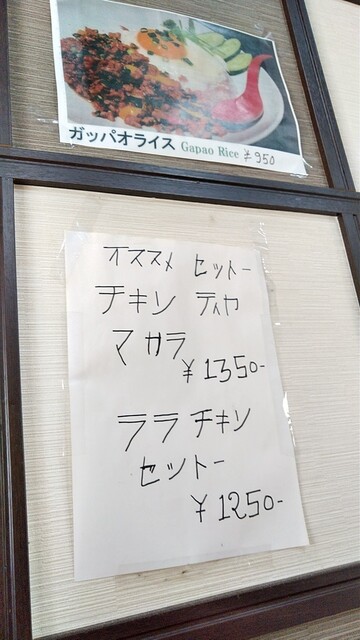 ガッパオライス Gapao Rice ¥950
オススメ セットー
チキン ティヤ
マサラ
¥1350-
ララ チキン
セットー
¥1250-